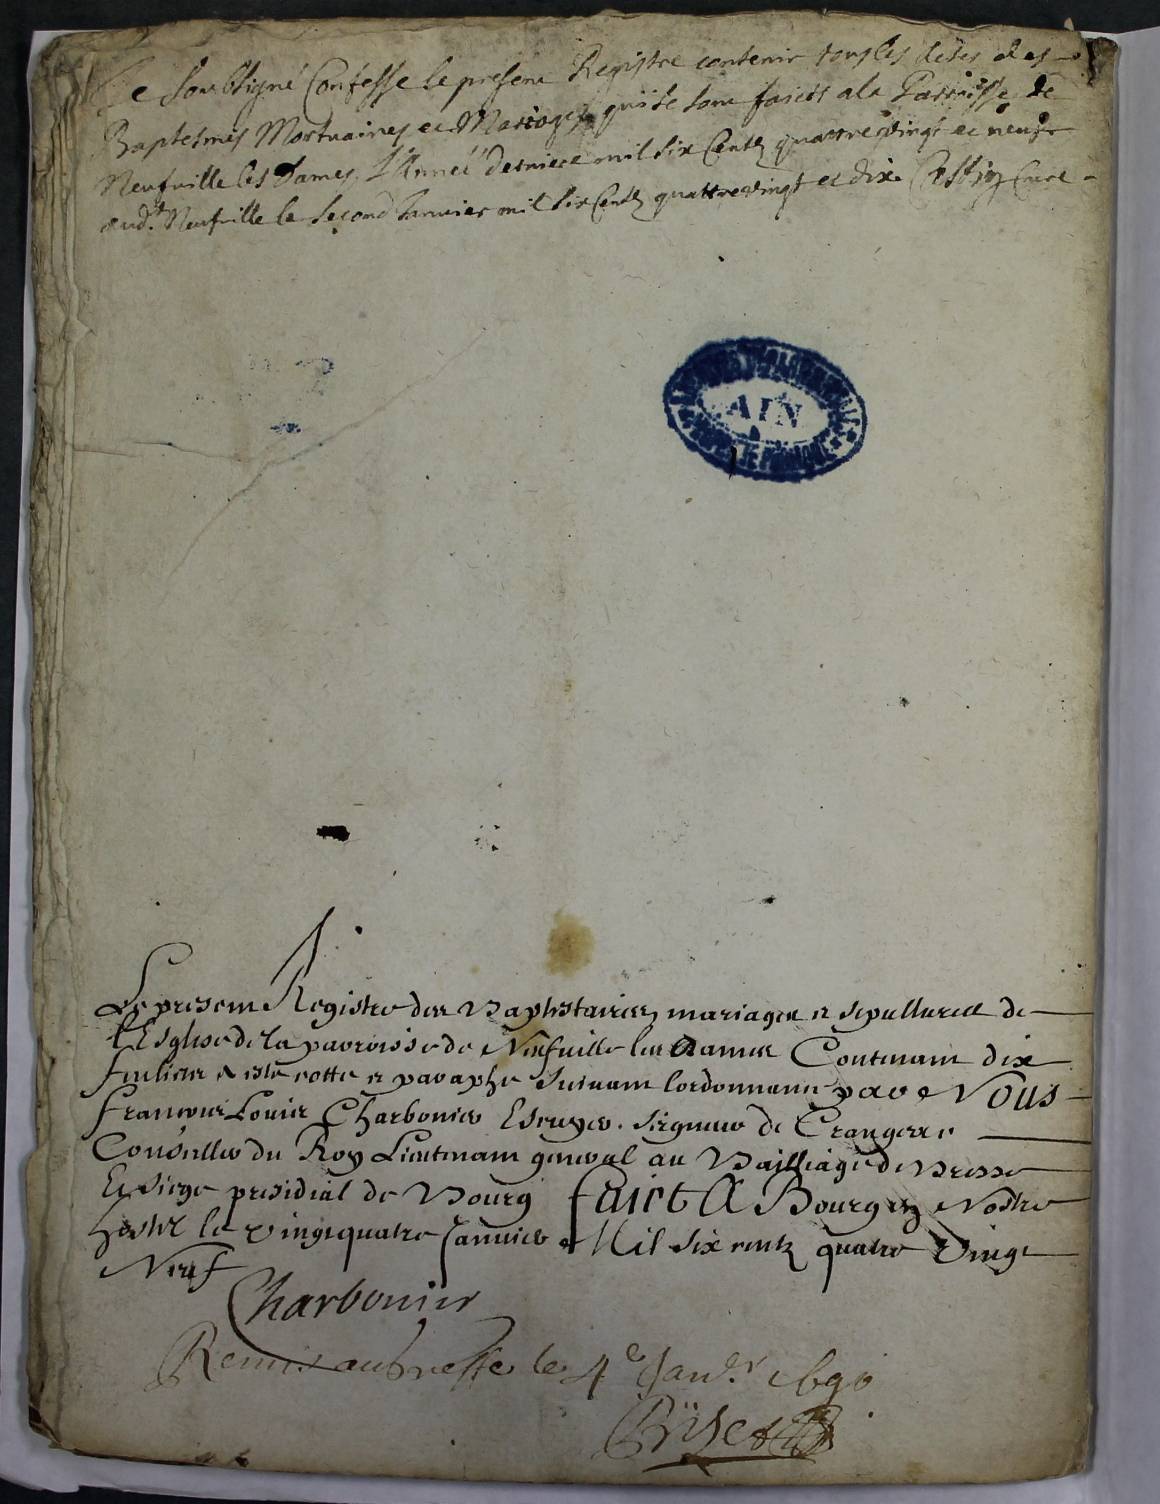 Je Soubsigné Confesse le present Registre contenir tous les Actes des
Baptesmes Mortuaires et Mariages qui se sont faicts a la Parroisse de
Neufville les Dames L'Année derniere mil six Centz quattre vingt et neufz
aud.t Neufville le Second Janvier mil six Centz quattre vingt et dix Curé
AIN
Le present Registre des Baptistaires, mariages et sepultures de
l'Esglise de la parroisse de Neufville les Dames Contenant dix
feulietz a esté cotté et paraphé Suivant lordonnance par Nous
Francois Louis Charbonier Escuyer, Seigneur de Crangeac
Conseiller du Roy Lieutenant general au Bailliage de Bresse
Et Siege presidial de Bourg faict A Bourg en Nostre
hostel le vingt quatre Janvier Mil six centz quatre vingt
Neuf
Charbonier
Remis au Greffe le 4e Janer 1690